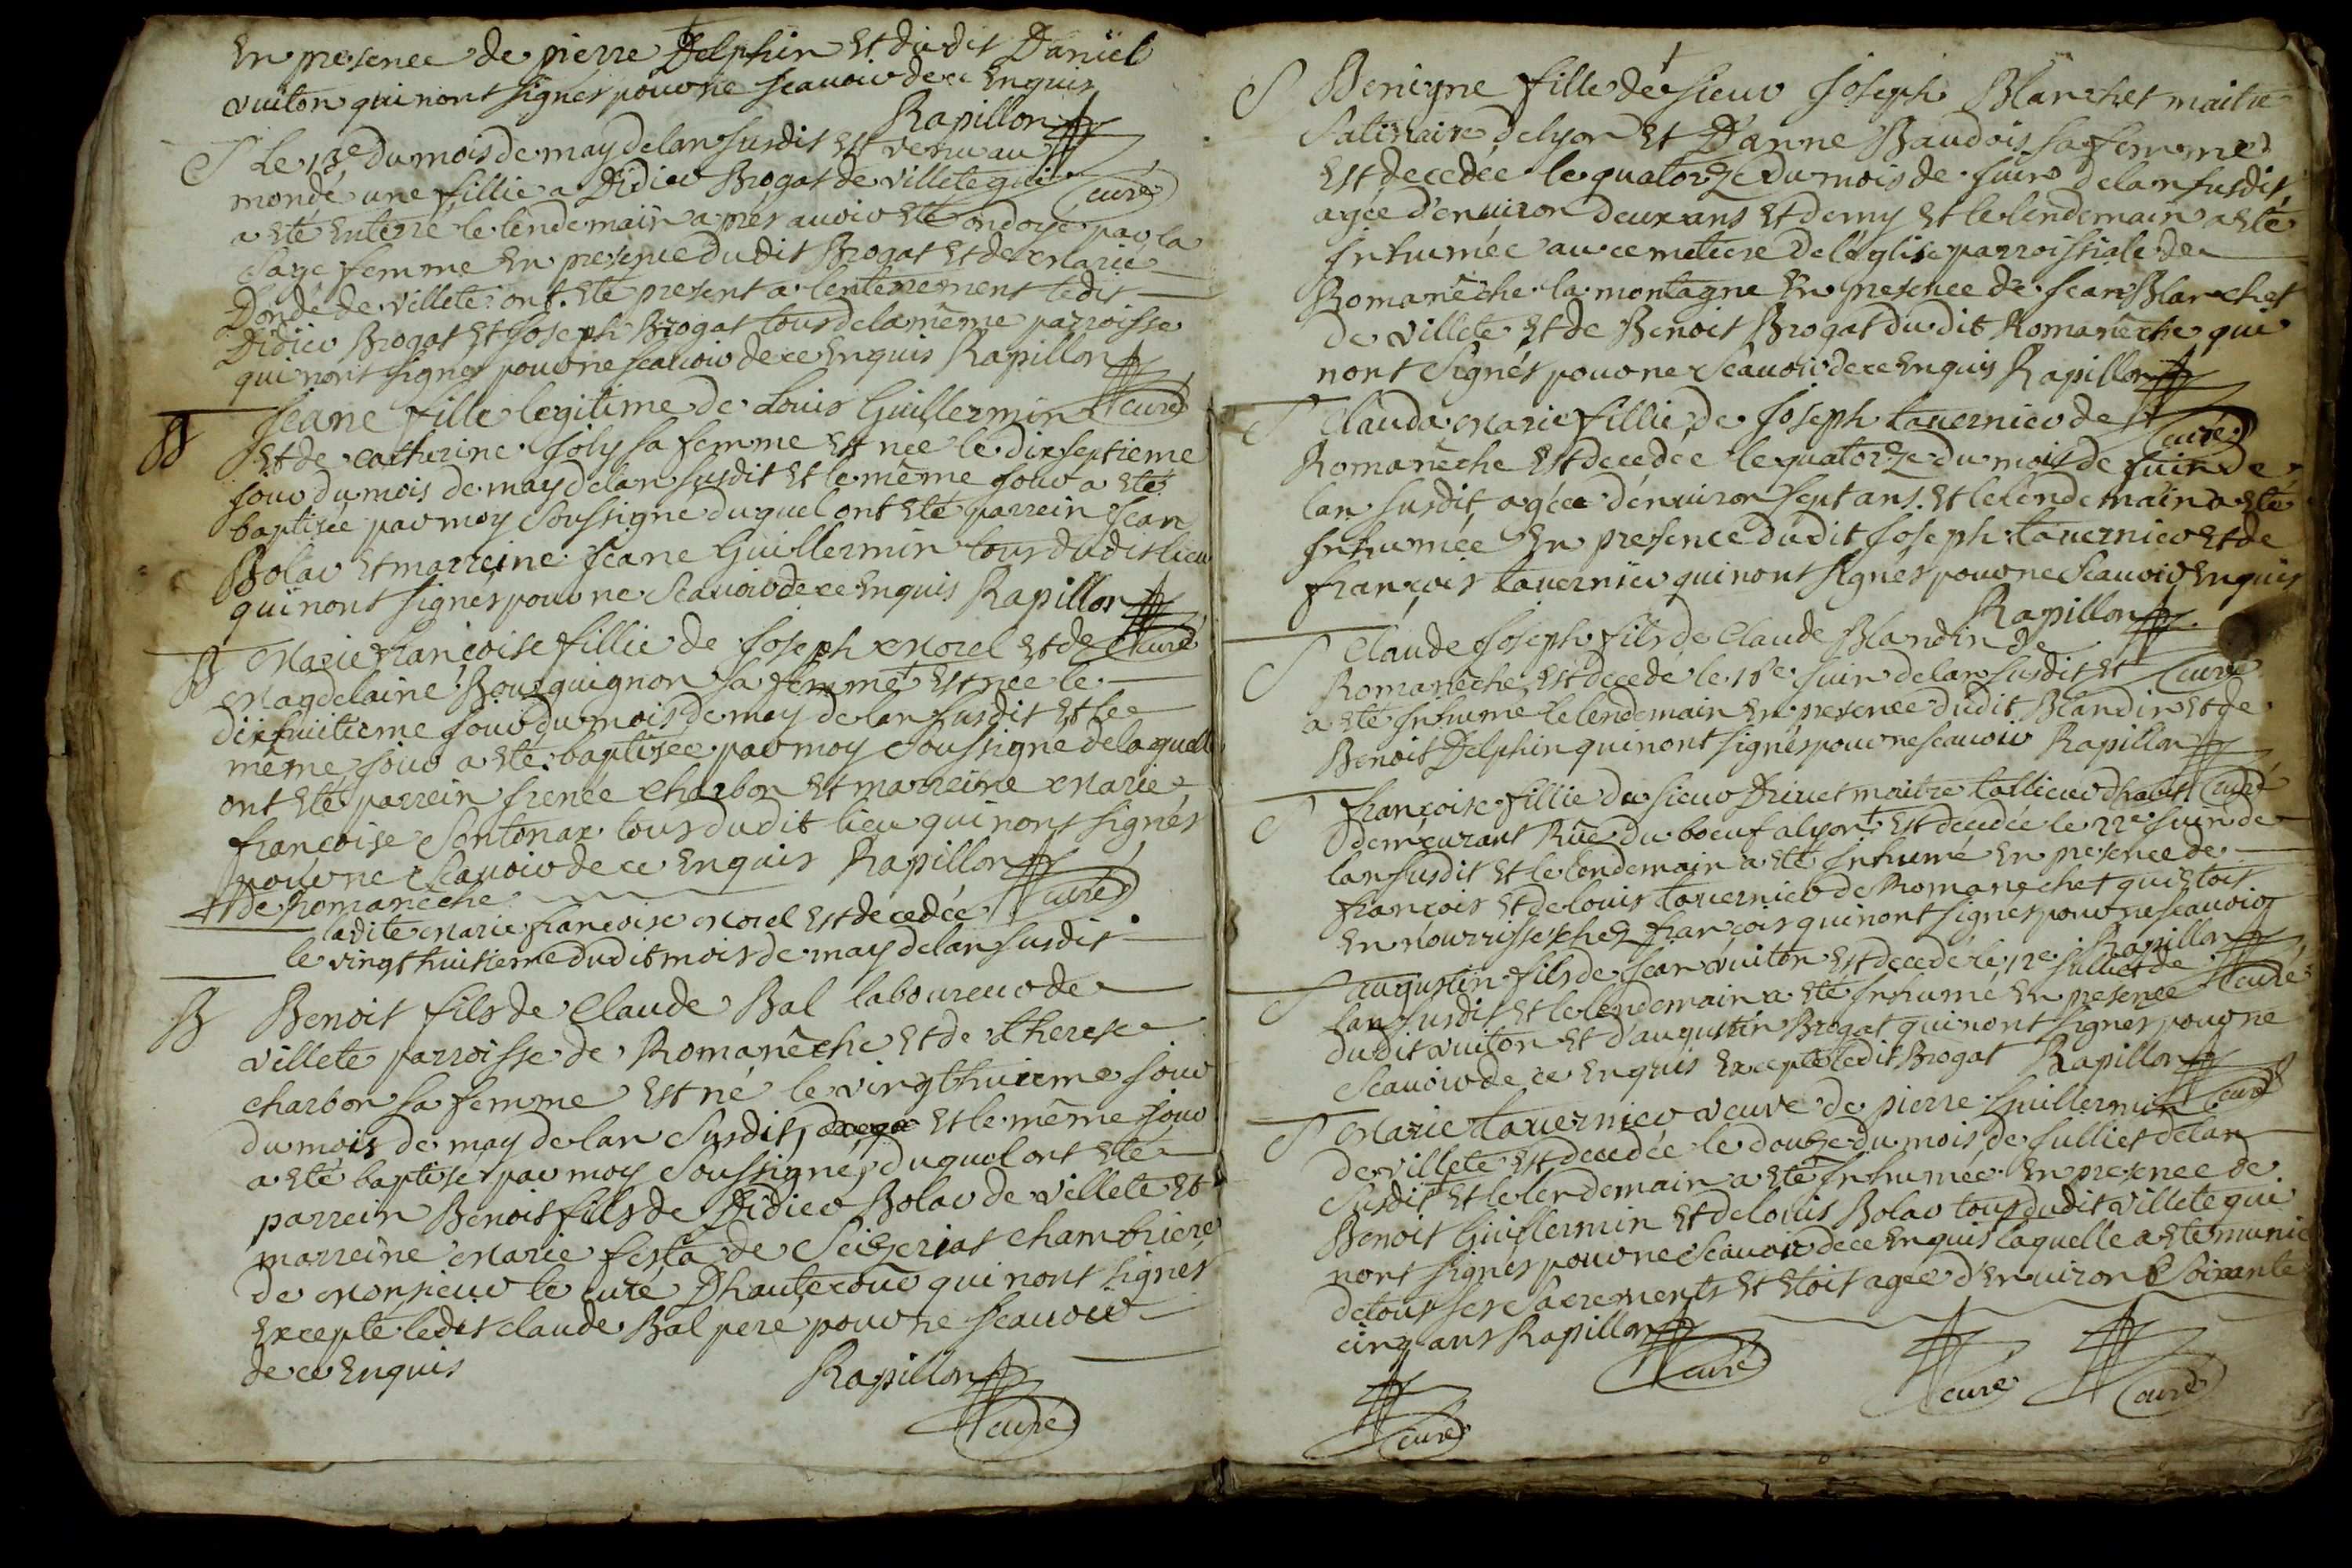 En presence de pierre Delphin Et dudit Daniel
vuiton qui nont signés pour ne scauoir de ce Enquis
Rapillon
curé
S Le 13e du mois de may de lan susdit est venu au
monde une fillie a Didier Brogat de villete qui
a eté enterré le lendemain apres auoir eté ondoyé par la
sage femme En presence dudit Brogat et de Marie
Dondé de villete: ont eté present a lenterrement ledit
Didier Brogat et Joseph Brogat tous de la même parroisse
qui nont signés pour ne scauoir de ce Enquis Rapillon
curé
B Jeane fille legitime de Louis Guillermin
Et de catherine Joly sa femme est née le dixseptieme
jour du mois de may de lan susdit et le même jour a eté
baptisée par moy soussigne duquel ont eté parrein Jean
Bolar et marreine Jeane Guillermin tous dudit lieu
qui nont signés pour ne scauoir de ce Enquis Rapillon
curé
B Marie françoise fillie de Joseph Morel et de
Magdelaine Bourguignon sa femme + est née le
dixhuitieme jour du mois de may de lan susdit et le
même jour a eté baptisée par moy soussigné de laquell
ont eté parrein frenée charbon et marreine Marie
françoise Sontonax tous dudit lieu qui nont signés
pour ne scauoir de ce Enquis Rapillon
curé
+ de Romanêche
ladite Marie françoise Morel est decedée
le vingt huitieme dudit mois de may de lan susdit
B Benoit fils de Claude Bal laboureur de
villete parroisse de Romanêche et de therese
charbon sa femme est né le vingt huitieme jour
du mois de may de lan susdit, et le même jour
a eté baptisé par moy soussigné, duquel ont eté
parrein Benoit fils de Didier Bolar de villete et
marreine Marie festa de Seizerias chambriere
de Monsieur le curé Dhautecour qui nont signés
excepté ledit claude Bal pere pour ne scauoir
de ce Enquis
Rapillon
curé
S Benigne fille de + sieur Joseph Blanchet maitre
Satinaire de lyon et D'anne Baudois sa femme
Est decedée le quatorze du mois de juin de lan susdit,
agée d'enuiron deux ans et demy et le lendemain a eté
Inhumée au cemetiere de léglise parroissiale de
Romanêche la montagne En presence de Jean Blanchet
de villete et de Benoit Brogat dudit Romanêche qui
nont signés pour ne scauoir de ce Enquis Rapillon
curé
S Clauda Marie fillie de Joseph tauernier de
Romanêche est decedée le quatorze du mois de juin de
lan susdit agée d'enuiron sept ans. et le lendemain a eté
Inhumée En presence dudit Joseph tauernier et de
françois tauernier qui nont signés pour ne scauoir Enquis
Rapillon
curé
S Claude Joseph fils de Claude Blandin de
Romanêche est decedé le 18e juin de lan susdit et
a eté Inhumé le lendemain En presence dudit Blandin et de
Benoit Delphin qui nont signés pour ne scauoir Rapillon
curé
S françoise fillie du sieur Driuet maitre tallieur dhabit
demeurant Rüe du boeuf a lyon + est decedée le 22e juin de
lan susdit et le lendemain a eté Inhumé En presence de
françois et de louis tauernier de Romaneche + qui etoit
En nourrisse chez françois qui nont signés pour ne scauoir
Rapillon
curé
S augustin fils de Jean vuiton est decedé le 12e Julliet de
lan susdit et le lendemain a eté Inhumé En presence
dudit vuiton et d'augustin Brogat qui nont signés pour ne
scauoir de ce Enquis excepté ledit Brogat Rapillon
curé
S Marie tauernier veuve de pierre Guillermin
de villete est decedée le douze du mois de Julliet de lan
susdit et le lendemain a eté Inhumée En presence de
Benoit Guillermin et de louis Bolar tous dudit villete qui
nont signés pour ne scauoir de ce Enquis laquelle a eté munie
de tous ses sacrements et etoit agée d'enuiron soixante
cinq ans Rapillon
curé
curé
curé
curé